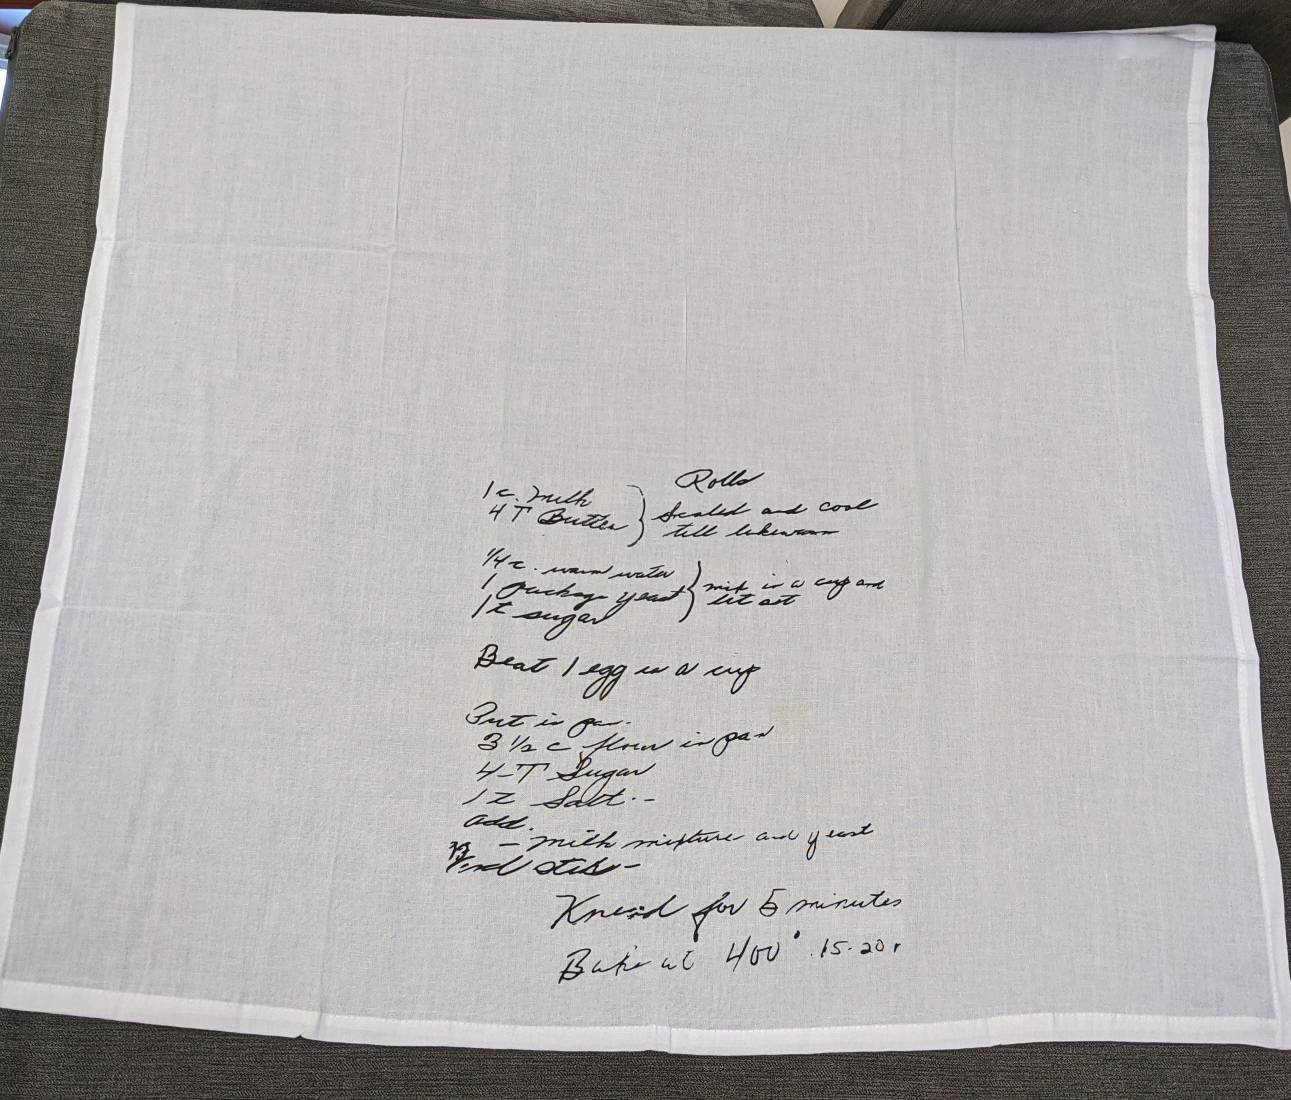 Rolls
1 c. milk } Scaled and cool
4 T Butter } till lukewarm
1/4 c. warm water
1 package yeast } mix in a cup and
1 t sugar } let set
Beat 1 egg in a cup
Put in pan.
3 1/2 c flour in pan
4-T Sugar
1 t Salt.-
add.
- milk mixture and yeast
and
Knead for 5 minutes
Bake at 400° 15-20